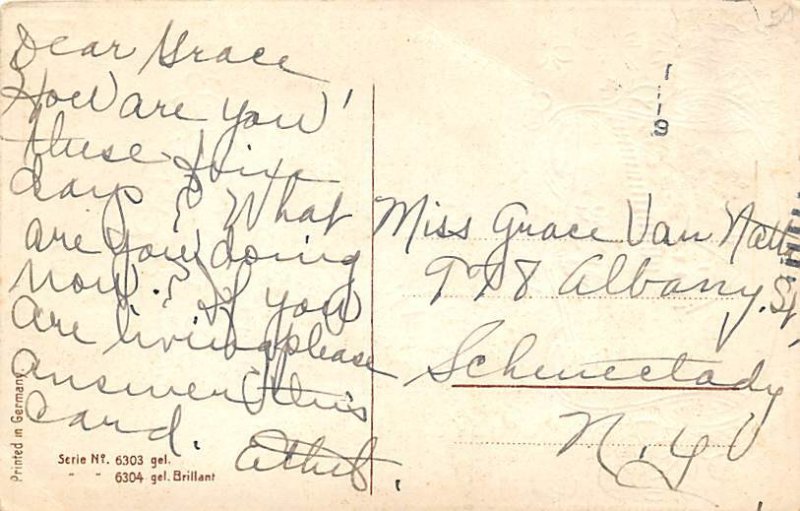 Dear Grace
How are you
these fine
days? What
are you doing
now? If you
are living please
answer this
card.
Ethel.
Miss Grace Van Natt
978 Albany St,
Schenectady
N.Y
Printed in Germany
Serie Nº. 6303 gel.
" " 6304 gel. Brillant